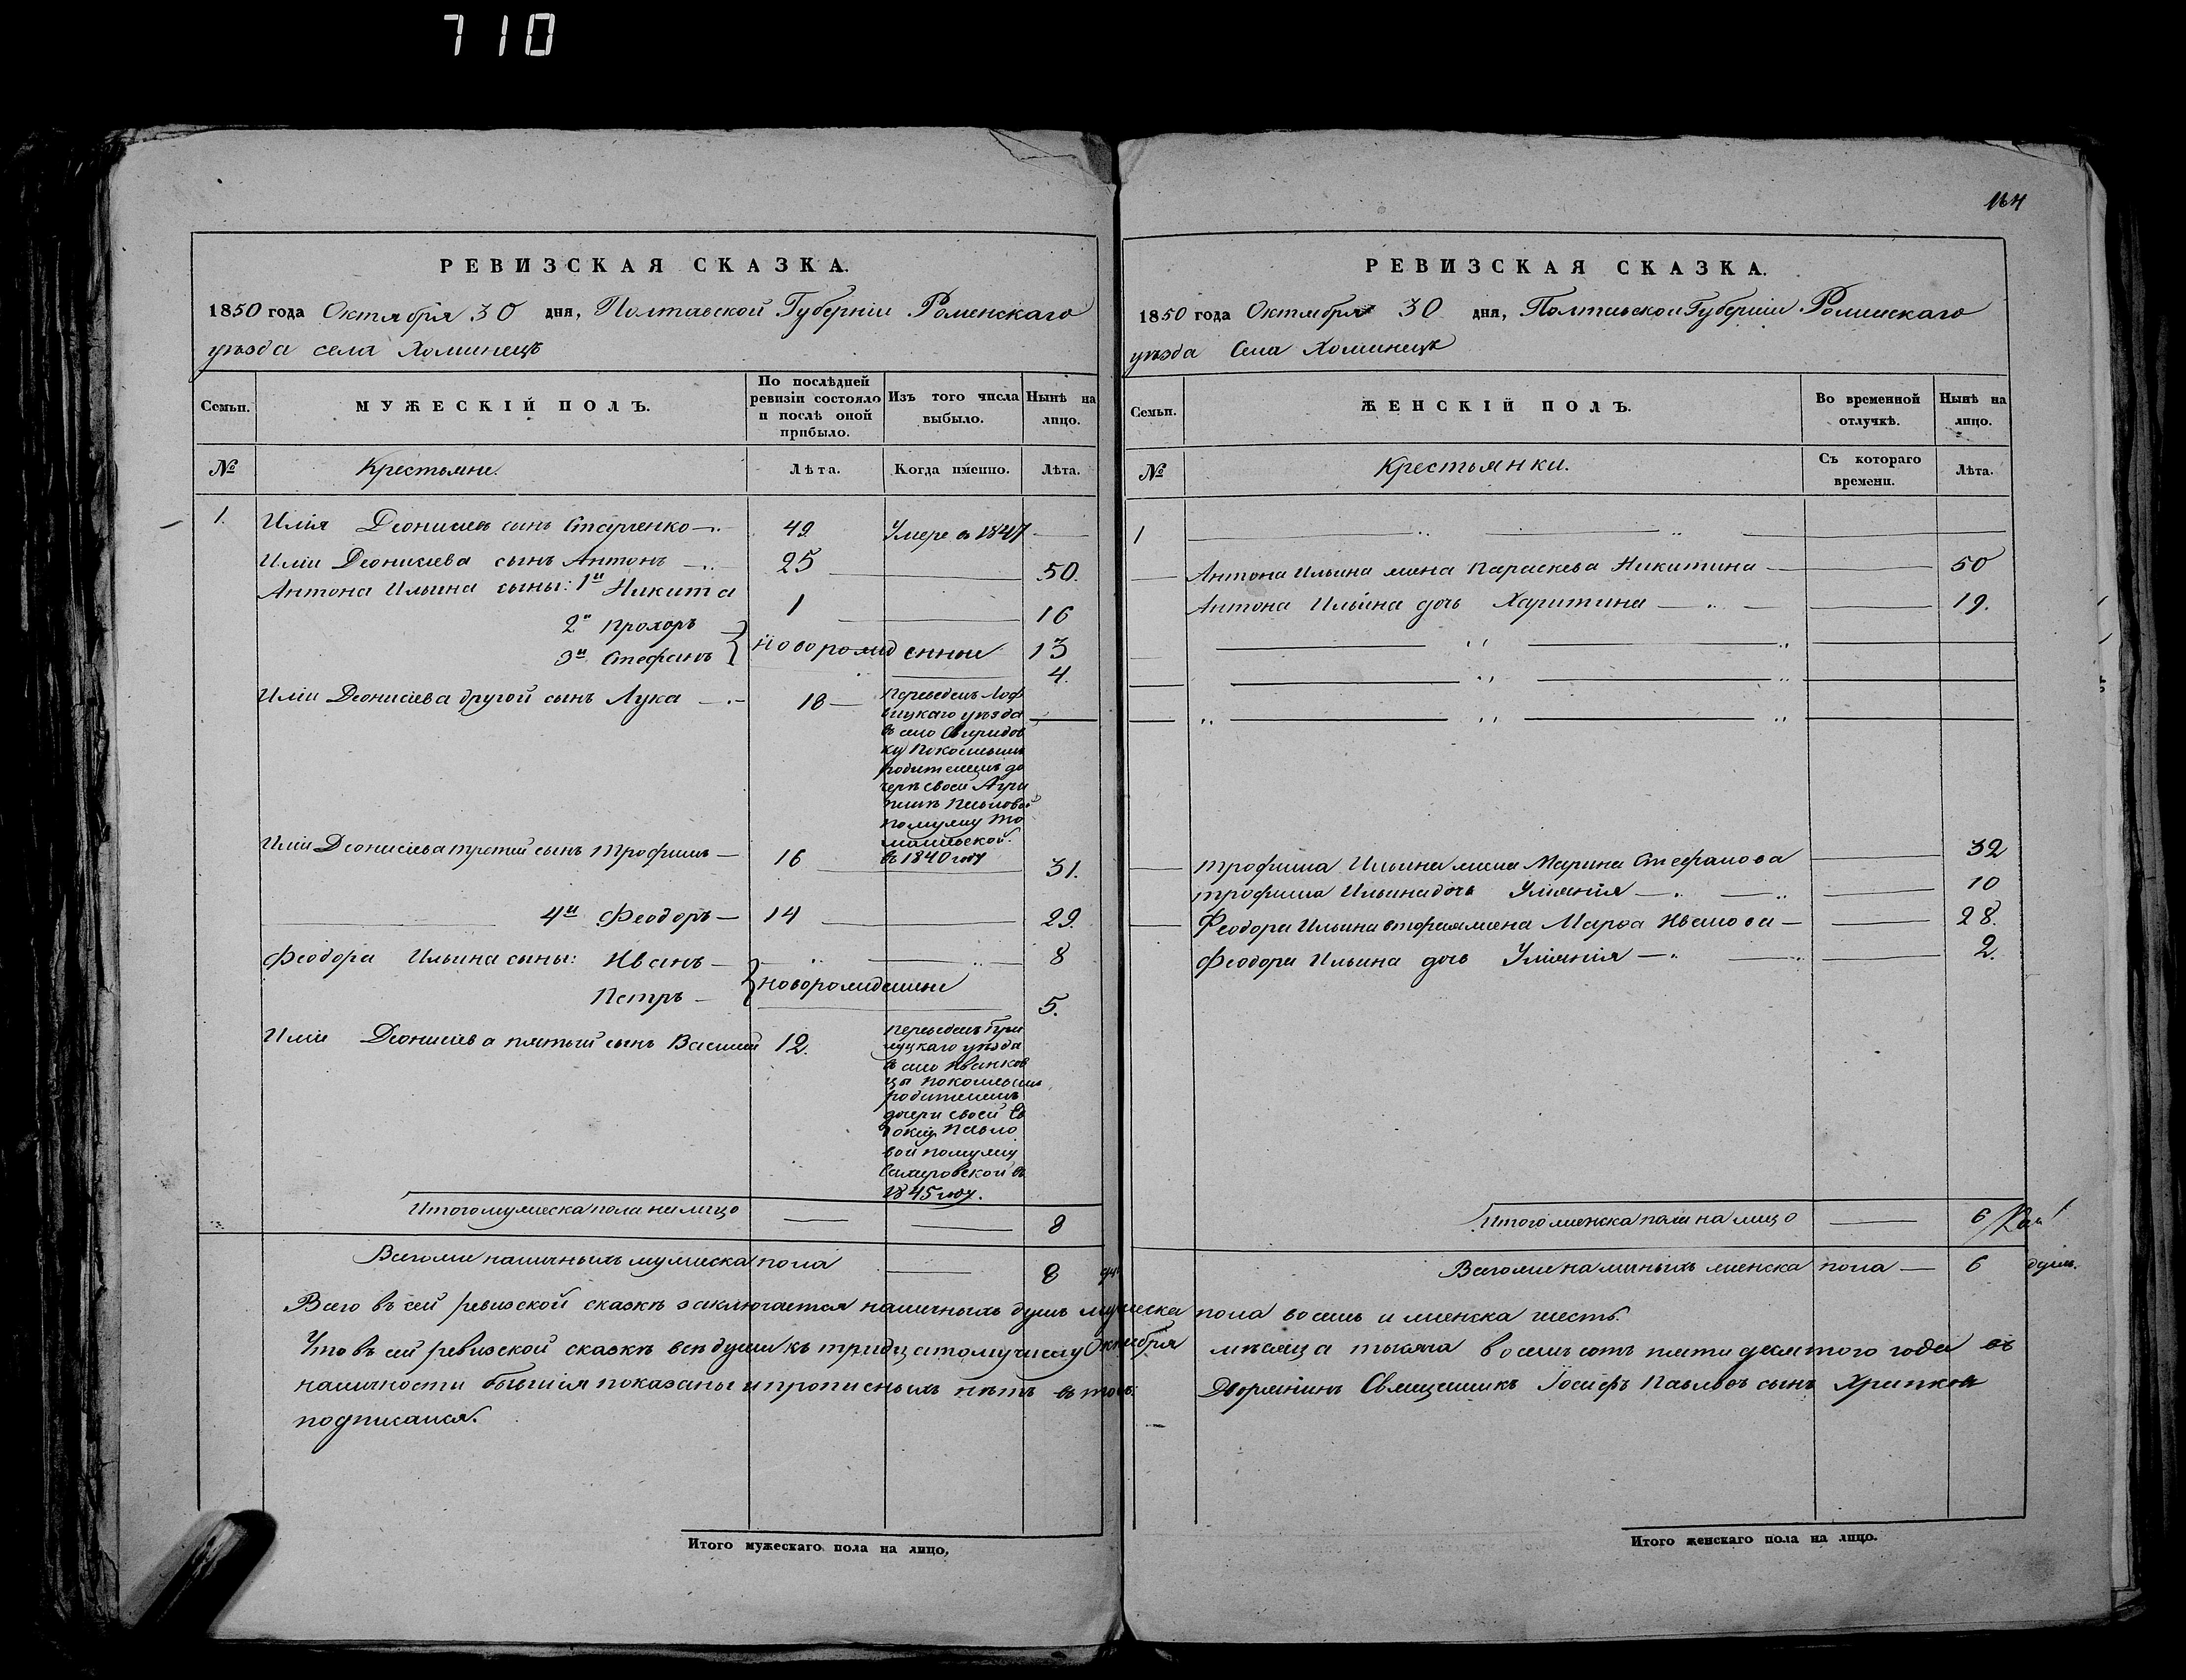 710
164
РЕВИЗСКАЯ СКАЗКА.
1850 года Октября 30 дня, Полтавской Губерніи Роменскаго
уѣзда села Хоминецъ
Семьи.
МУЖЕСКІЙ ПОЛЪ.
По послѣдней
ревизіи состояло
и послѣ оной
прибыло.
Изъ того числа
выбыло.
Нынѣ на
лицо.
№
Крестьяне.
Лѣта.
Когда именно.
Лѣта.
1. Илія Деонисіевъ сынъ Старченко 49 Умере въ 1847
Иліи Деонисіева сынъ Антонъ 25 50.
Антона Ильина сыны: 1й Никита 1 16
2й Прохоръ
3й Стефанъ } новорожденные 13
4.
Иліи Деонисіева другой сынъ Лука 18
Переведенъ Лох
вицкаго уѣзда
въ село Свиридов
ку покойнымъ
родителемъ до
черѣ своей Агри
пинѣ Павловой
по мужу То
машевской
въ 1840 году
Иліи Деонисіева третій сынъ Трофимъ 16 31.
4й Феодоръ 14 29.
Феодора Ильина сыны: Иванъ 8
Петръ } новорожденные 5.
Иліи Деонисіева пятый сынъ Василій 12.
переведенъ При
луцкаго уѣзда
въ село Иванков
цы покойнымъ
родителемъ
дочери своей Ев
докіи Павло
вой по мужу
въ
1845 году.
Итого мужеска пола на лицо 8
Всего же наличныхъ мужеска пола 8
РЕВИЗСКАЯ СКАЗКА.
1850 года Октября 30 дня, Полтавской Губерніи Роменскаго
уѣзда Села Хоминецъ
Семьи.
ЖЕНСКІЙ ПОЛЪ.
Во временной
отлучкѣ.
Нынѣ на
лицо.
№
Крестьянки.
Съ котораго
времени.
Лѣта.
1
Антона Ильина жена Параскева Никитина 50
Антона Ильина дочь Харитина 19.
Трофима Ильина жена Марина Стефанова 32
Трофима Ильина дочь Уліянія 10
Феодора Ильина вторая жена Марфа Иванова 28.
Феодора Ильина дочь Уліянія 2.
Итого женска пола на лицо 6
Всего же наличныхъ женска пола 6 душъ.
Всего въ сей ревизской сказкѣ заключается наличныхъ душъ мужеска пола восемь и женска шесть.
Что въ сей ревизской сказкѣ всѣ души къ тридцатому числу Октября мѣсяца тысяча восемь сотъ пятидесятого года въ
наличности бывшія показаны и прописныхъ нѣтъ въ томъ Дворянинъ Священникъ Іосифъ Павловъ сынъ
подписался.
Итого мужескаго пола на лицо,
Итого женскаго пола на лицо.